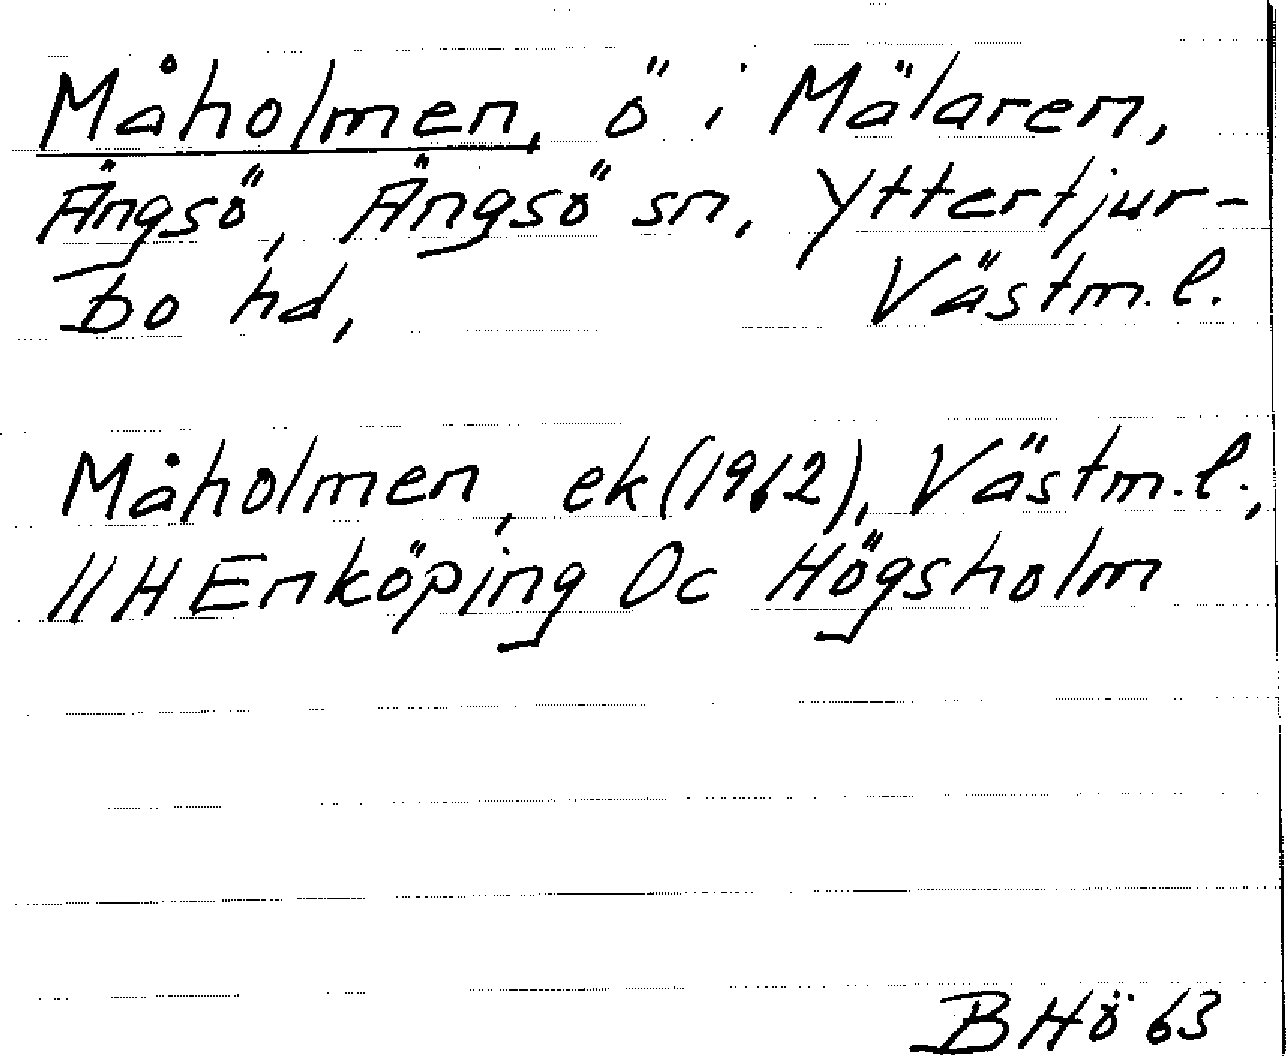 Måholmen, ö i Mälaren,
Ängsö, Ängsö sn, Yttertjur-
bo hd, Västm.l.
Måholmen, ek (1962), Västm.l.,
11H Enköping 0c Högsholm
BHö 63